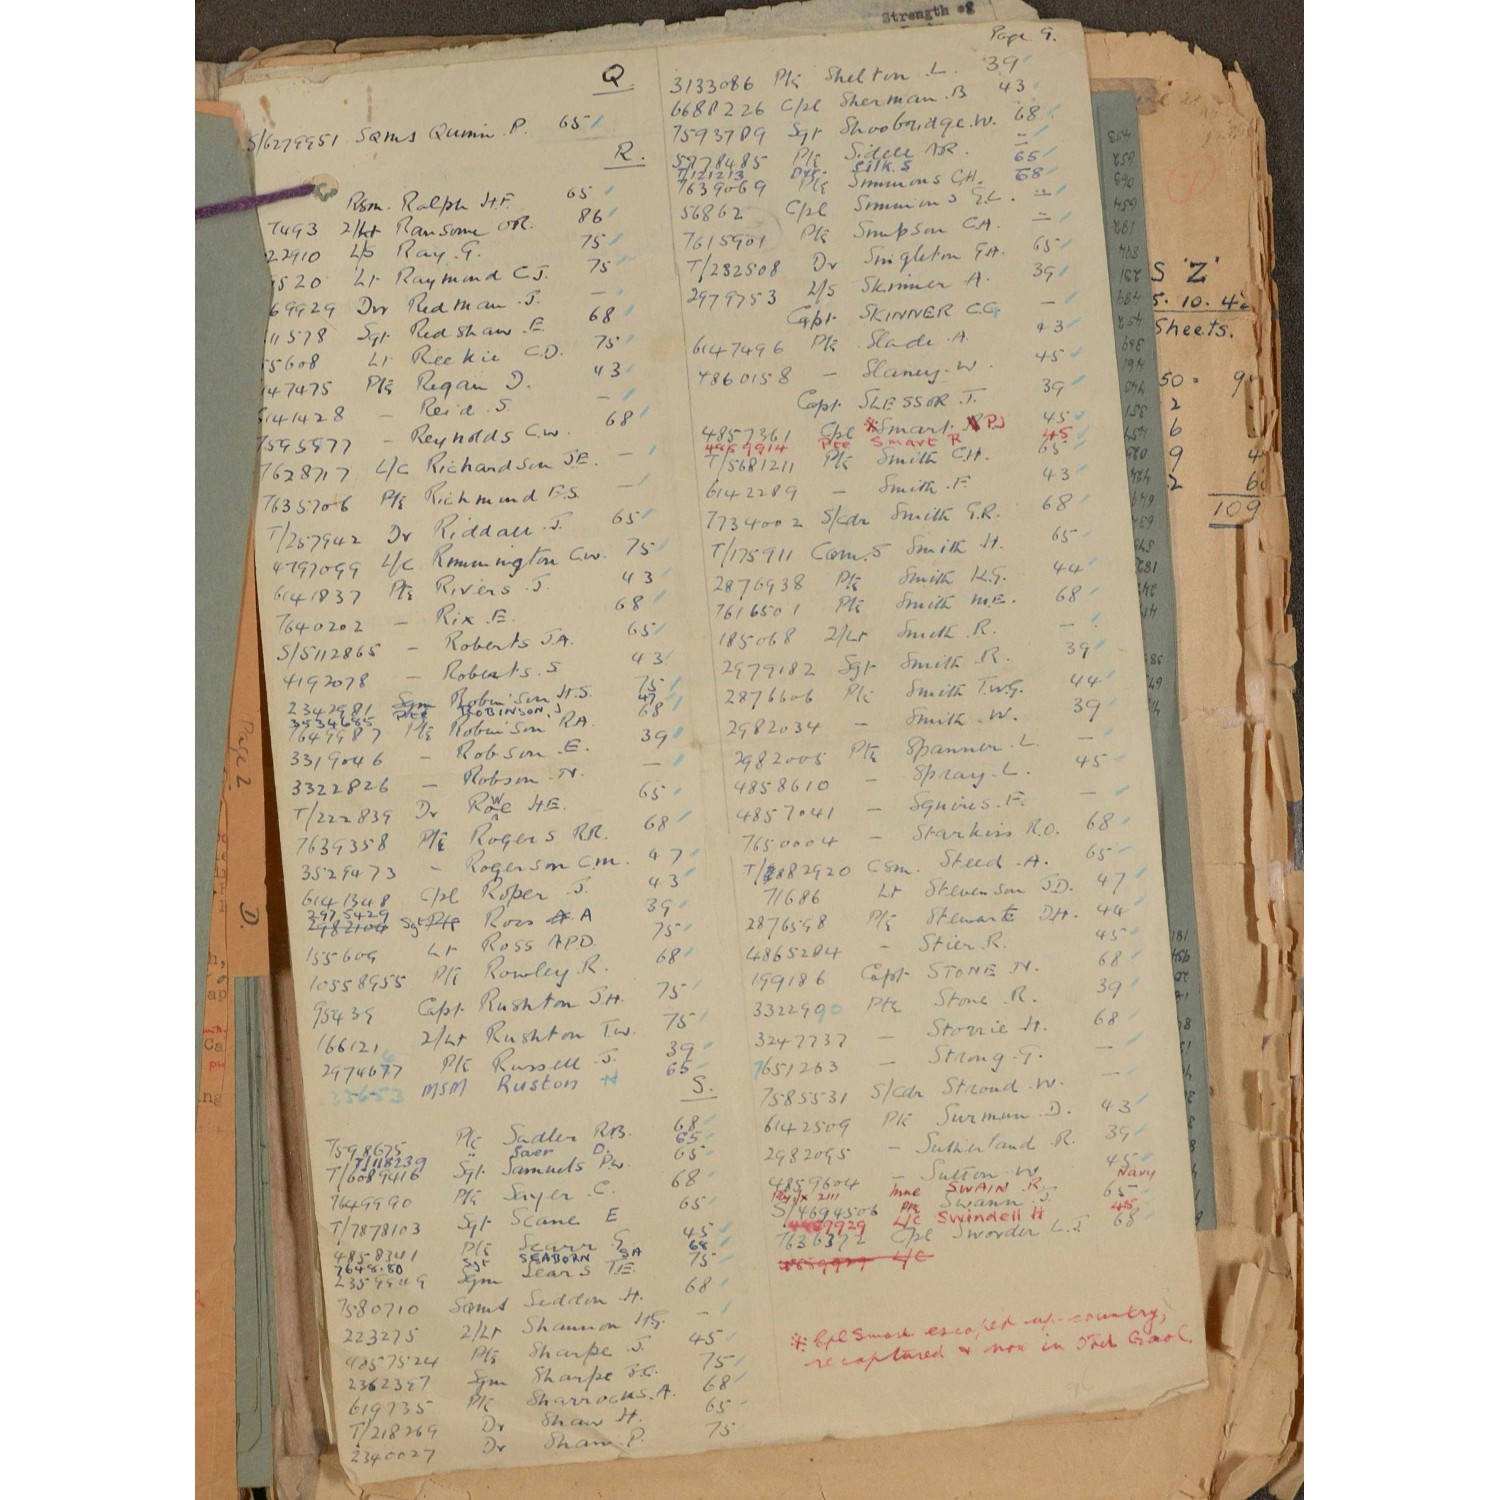 Strength of
Page 9.
Q.
S/6279951 SQMS Quinn P. 65
R.
RSM. Ralph H.F. 65
7493 2/Lt Ransome OR. 86
22910 L/S Ray. G. 75
520 Lt Raymond C.J. 75
69929 Dvr Redman. J. –
11578 Sgt Redshaw. E. 68
55608 Lt Reekie C.D. 75
147475 Pte Regan D. 43
5141428 – Reid. S. –
7595977 – Reynolds C.W. 68
7628717 L/C Richardson J.E. –
7635706 Pte Richmond F.S. –
T/257942 Dr Riddall. J. 65
4797099 L/C Rimmington C.W. 75
6141837 Pte Rivers. J. 43
7640202 – Rix. E. 68
S/5112865 – Roberts J.A. 65
4192078 – Roberts. S 43
2342981 Sgm Robinson H.S. 75
3534685 Pte ROBINSON, J 47
7649987 Pte Robinson R.A. 68
3319046 – Robson. E. 39
3322826 – Robson. N. –
T/222839 Dr Rowe H.E. 65
7639358 Pte Rogers R.R. 68
3529473 – Rogerson C.M. 47
6141348 Cpl Roper. J. 43
2975429
2982104 Sgt Pte Ross A 39
155609 Lt Ross A.P.D. 75
10558955 Pte Rowley. R. 68
95439 Capt Rushton J.H. 75
166121 2/Lt Rushton T.W. 75
2974677 Pte Russell. J. 39
33653 MSM Ruston N 65
S.
7598675 Pte Sadler R.B. 68
T/118239 " Saer D. 65
T/6089416 Sgt Samuels P.W. 65
7649990 Pte Sayer. C. 68
T/7878103 Sgt Scane E 65
4858341 Pte Scarr G. 45
7648180 Sgt SEABORN SA 68
2359909 Sgm Sears T.E. 75
7580710 SQMS Seddon H. 68
223275 2/Lt Shannon H.G. –
4857524 Pte Sharpe J. 45
2362397 Sgm Sharpe J.G. 75
619735 Pte Sharrocks. A. 68
T/218269 Dr Shaw H. 65
2340027 Dr Shaw. P. 75
3133086 Pte Shelton. L. 39
6688226 Cpl Sherman. B 43
7593789 Sgt Shoobridge. W. 68
5978485 Pte Sidell A.R. –
T/121213 Dvr. Silk. S 65
7639069 Pte Simmons G.H. 68
56862 Cpl Simmons G.L. –
7615901 Pte Simpson C.A. –
T/232508 Dr Singleton G.A. 65
2979753 L/S Skinner A. 39
Capt. SKINNER C.G –
6147496 Pte Slade. A. 43
4860158 – Slaney. W. 45
Capt. SLESSOR. J. 39
4857361 Cpl * Smart. PJ 45
4859914 Pte Smart R 45
T/5681211 Pte Smith C.H. 65
6142289 – Smith. F. 43
7734002 S/Cdr Smith G.R. 68
T/175911 Com. S Smith H. 65
2876938 Pte Smith K.G. 44
7616501 Pte Smith M.E. 68
185068 2/Lt Smith. R. –
2979182 Sgt Smith. R. 39
2876606 Pte Smith T.W.G. 44
2982034 – Smith. W. 39
2982005 Pte Spanner. L. –
4858610 – Spray. L. 45
4857041 – Squires. F. –
7650004 – Starkiss R.O. 68
T/3882920 CSM. Steed. A. 65
71686 Lt Stevenson J.D. 47
2876598 Pte Stewart D.H. 44
4865284 – Stier. R. 45
199186 Capt. STONE. N. 68
3322990 Pte Stone. R. 39
3247737 – Storrie H. 68
7651263 – Strong. G. –
7585531 S/Cdr Stroud. W. –
6142509 Pte Surman. D. 43
2982095 – Sutherland. R. 39
4859604 – Sutton. W. 45
Ply/x 2111 Mne SWAIN. R. Navy
S/4694506 Pte Swann. J. 65
4857929 L/C Swindell H 45
7636372 Cpl Sworder L.J 68
4859929 L/C
* Cpl Smart escaped up-country,
recaptured & now in Ord Gaol.
96
Page 2
D.
S 'Z'
5.10.42
Sheets.
50
2
6
9
2
109